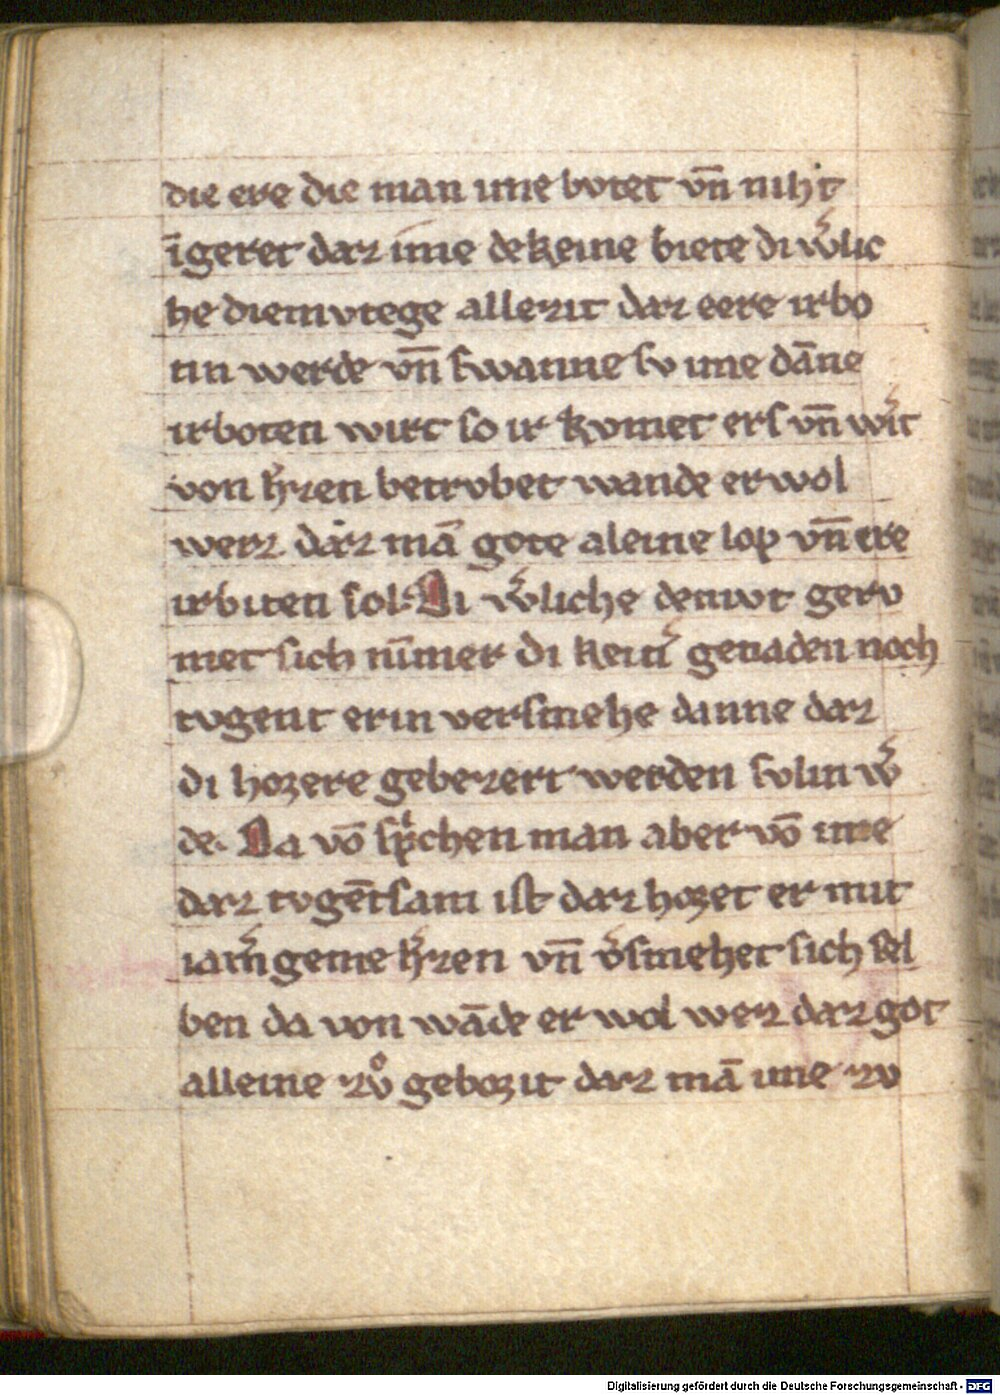 die ere die man ime butet vn̄ niht
īgeret daz ime dekeine biete di w̾lic
he diemvtege allezit daz eere irbo
tin werde vn̄ swanne sv ime dāne
irboten wirt so ir kvmet ers vn̄ w̾it
von h̾zen betrvbet wande er wol
weiz daz mā gote aleine lop vn̄ ere
irbiten sol. Di w̾liche demvt gerv
met sich nūmer di kein̾ genaden noch
tvgent er in versmehe danne daz
di hozere gebezert werden svlin w̾
de. Da vō sp̾chen man aber vō ime
daz tvgētsam ist daz hozet er mit
iam̾igeme h̾zen vn̄ v̾smehet sich sel
ben da von wāde er wol weiz daz got
alleine zvͦ gehozit daz mā ime zv
Digitalisierung gefördert durch die Deutsche Forschungsgemeinschaft - DFG